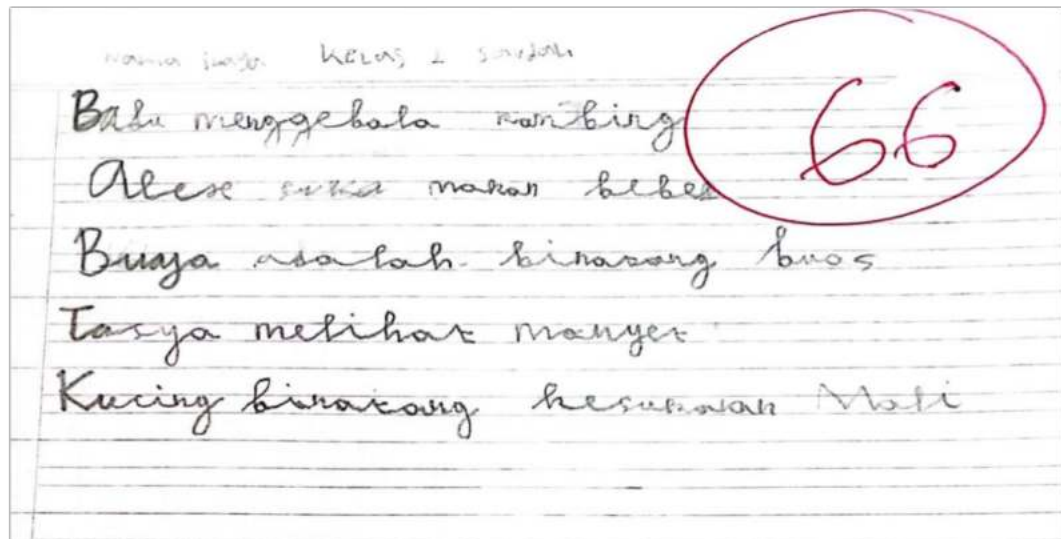 Kelas 1
66
menggebala kambing
suka makan bebek
Buaya adalah binatang buas
Tasya melihat monyet
Kucing binatang kesukaan